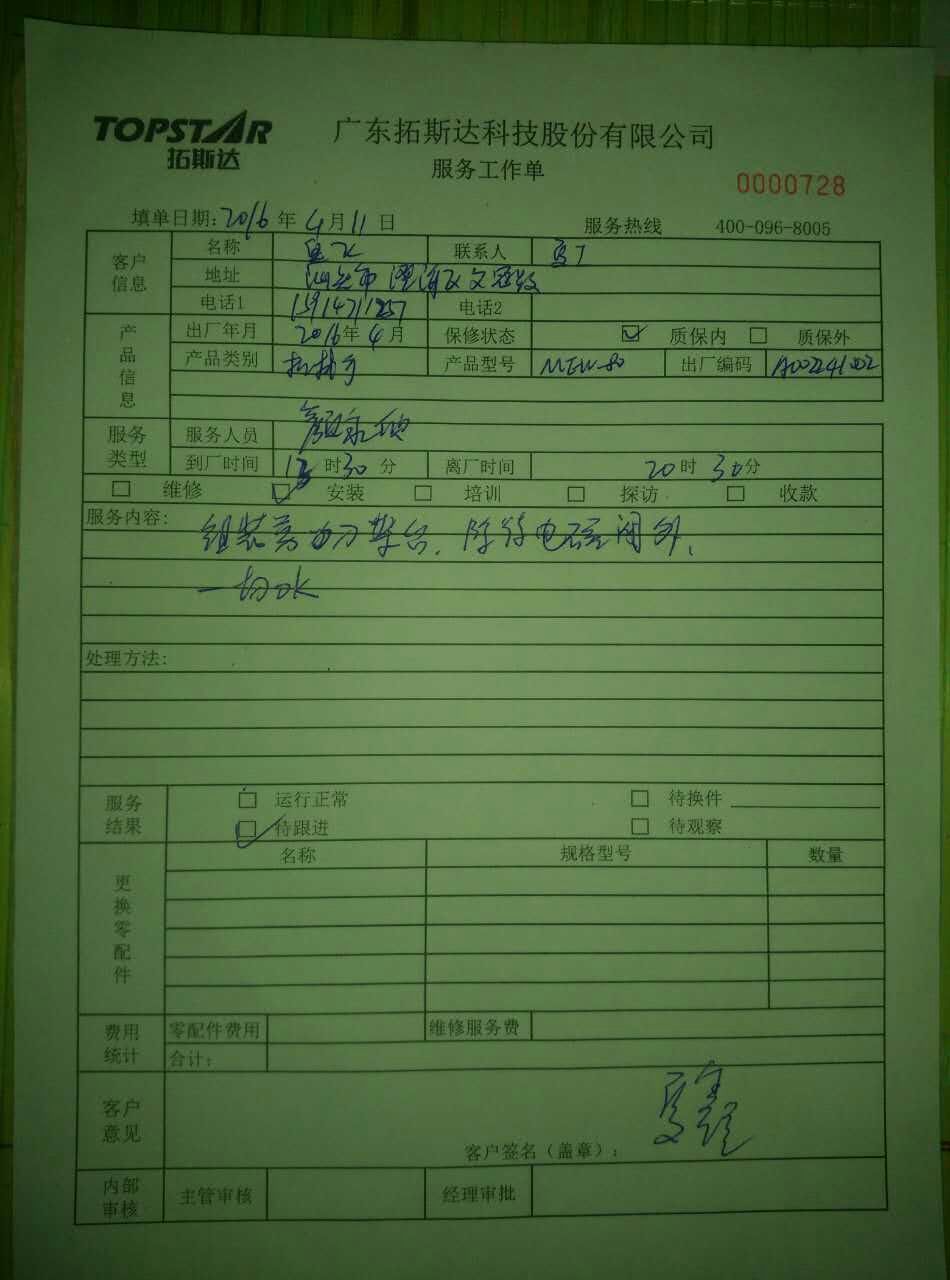 TOPSTAR
拓斯达
广东拓斯达科技股份有限公司
服务工作单
0000728
填单日期: 2016 年 4 月 11 日 服务热线 400-096-8005
客户信息
名称 联系人
地址 汕头市 澄海区文冠路
电话1 15914711257 电话2
产品信息
出厂年月 2016 年 4 月 保修状态 质保内 质保外
产品类别 机械手 产品型号 MEW-80 出厂编码 A002241002
服务类型
服务人员
到厂时间 时 30 分 离厂时间 20 时 30 分
维修 安装 培训 探访 收款
服务内容:
组装 电磁阀外、
一切
处理方法:
服务结果
运行正常 待换件
待跟进 待观察
更换零配件
名称 规格型号 数量
费用统计
零配件费用 维修服务费
合计:
客户意见
客户签名（盖章）:
内部审核
主管审核 经理审批